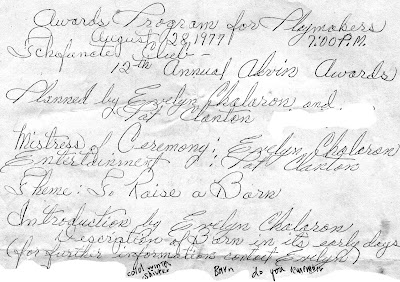 Awards Program for Playmakers
August 28, 1977 7:00 P.M.
Tchefuncte Club
12th Annual Alvin Awards
Planned by Evelyn Chalaron and
Pat Clanton
Mistress of Ceremony: Evelyn Chalaron
Entertainment: Pat Clanton
Theme: To Raise a Barn
Introduction by Evelyn Chalaron
Description of Barn in its early days
(for further information contact Evelyn)
cold winter
Barn do you remember